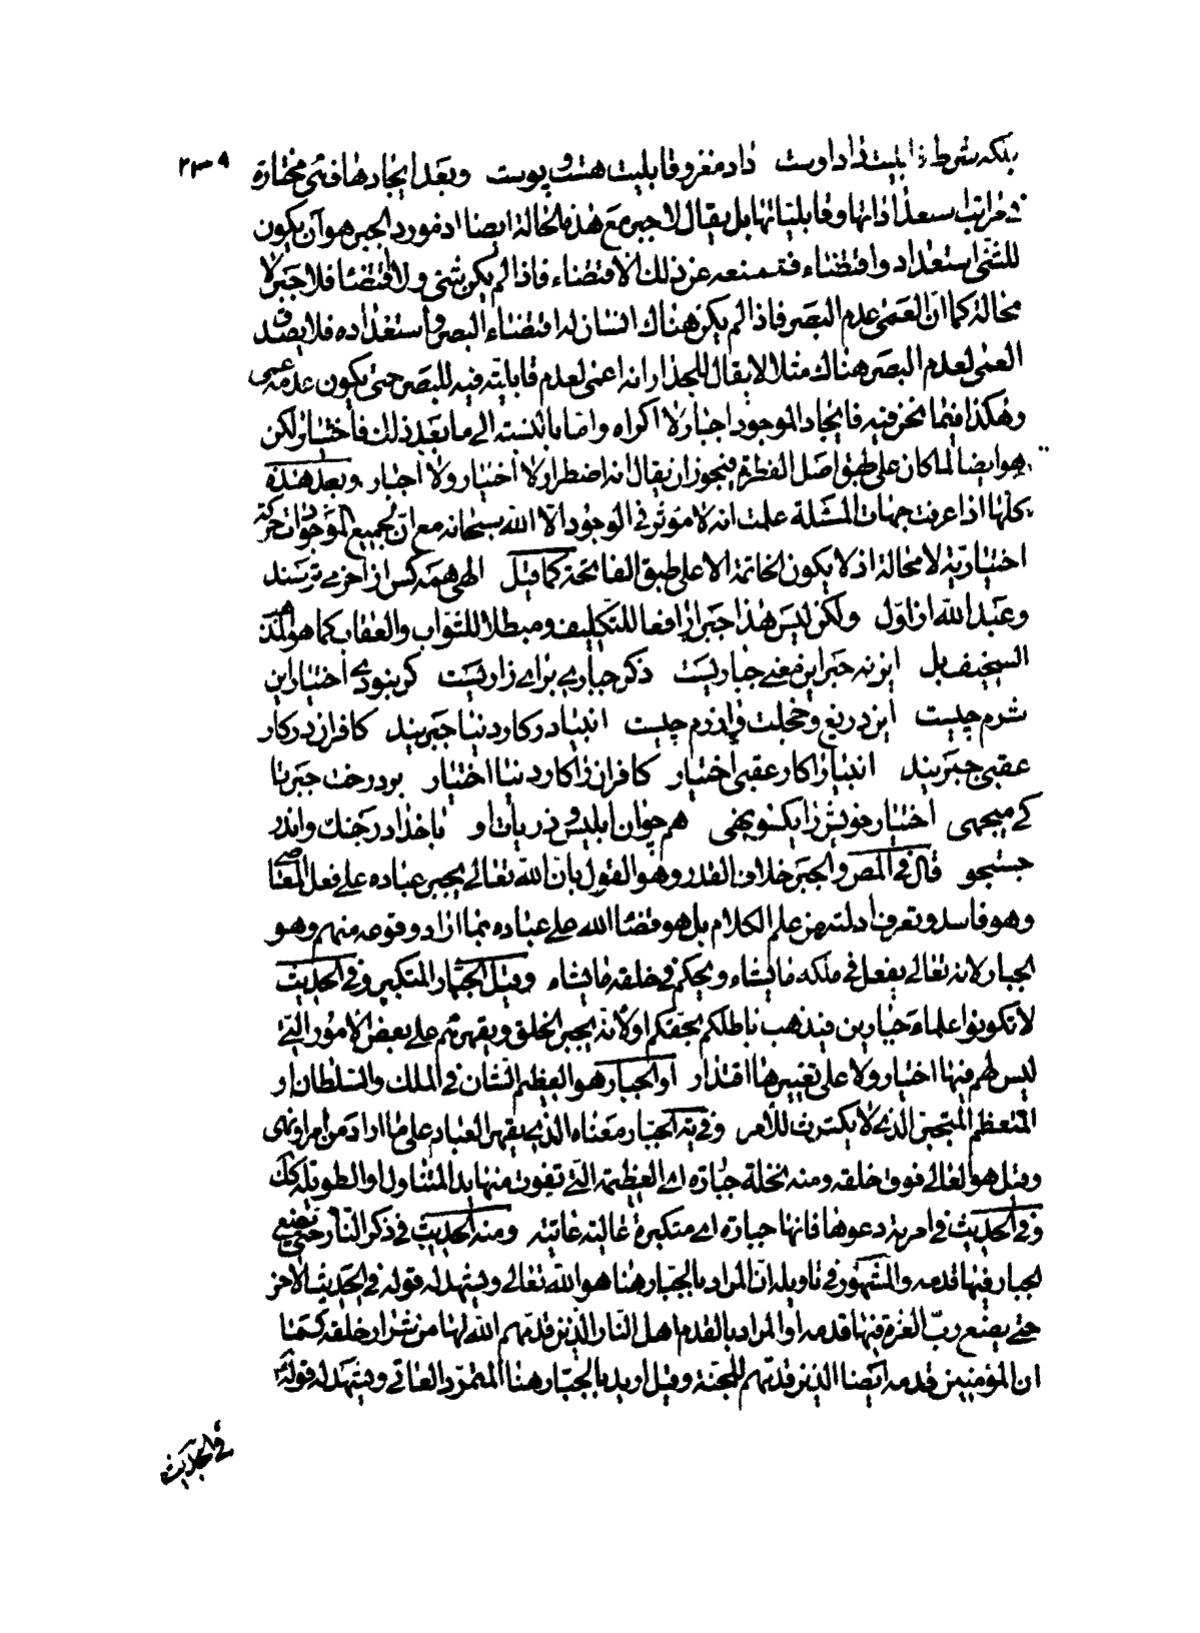 ٢٣٩
بلكه شرط قابليت داد اوست داد مغز و قابليت هست پوست وبعد ايجادها فهى مختارة
فى مراتب استعداداتها وقابلياتها بل يقال لا جبر مع هذه الحالة ايضا اذ مورد الجبر هو أن يكون
للشئ استعداد واقتضاء فتمنعه عن ذلك الاقتضاء فاذا لم يكن شئ ولا اقتضاء فلا جبر لا
محالة كما ان العمى عدم البصر فاذا لم يكن هناك انسان له اقتضاء البصر واستعداده فلا يصدق
العمى لعدم البصر هناك مثلا لا يقال للجدار انه اعمى لعدم قابليته فيه للبصر حتى يكون عدمه عمى
وهكذا فيما نحن فيه فايجاد الموجود اجبار لا اكراه واما بالنسبة الى ما بعد ذلك فاختيار لكن
هو ايضا لما كان على طبق اصل الفطرة فيجوز ان يقال انه اضطرار لا اختيار ولا اجبار وبعد هذه
كلها اذا عرفت جهات المسئلة علمت انه لا مؤثر فى الوجود الا الله سبحانه مع ان لجميع الموجودات حركة
اختيارية لا محالة اذ لا يكون الخاتمة الا على طبق الفاتحة كما قيل الهى همه كس از آخر مى ترسند
وعبد الله از اول ولكن ليس هذا جبرا رافعا للتكليف ومبطلا للثواب والعقاب كما هو المذهب
السخيف بل اين نه جبر اين معنى جباريست ذكر جبارى براى زاريست گر نبودى اختيار اين
شرم چيست اين دريغ وخجلت وآزرم چيست انبيا در كار دنيا جبريند كافران در كار
عقبى جبريند انبيا را كار عقبى اختيار كافران را كار دنيا اختيار بر درخت جبر تا
كى ميجهى اختيار خويش را يكسو نهى همچو آن ابليس و ذريات او با خدا در جنگ و اندر
جستجو قال فى المص والجبر خلاف القدر وهو القول بان الله تعالى يجبر عباده على فعل المعاصى
وهو فاسد وتعرف ادلته من علم الكلام بل هو قضاء الله على عباده بما اراد وقوعه منهم وهو
الجبار لانه تعالى يفعل فى ملكه ما يشاء ويحكم فى خلقه ما يشاء وقيل الجبار المتكبر وفى الحديث
لا تكونوا علماء جبارين فيذهب باطلكم بحقكم اولانه يجبر الخلق ويقهرهم على بعض الامور التى
ليس لهم فيها اختيار ولا على تغييرها اقتدار او الجبار هو العظيم الشان فى الملك والسلطان او
المتعظم المتجبر الذى لا يكترث للأمر وفى يه الجبار معناه الذى يقهر العباد على ما اراد من امر او نهى
وقيل هو العالى فوق خلقه ومنه نخلة جبارة اى العظيمة التى تفوت منها يد المتناول او الطويلة كك
وفى الحديث فى امرية دعوها فانها جبارة اى متكبرة عالية عاتية ومنه الحديث فى ذكر النار حتى يضع
الجبار فيها قدمه والمشهور فى تاويله ان المراد بالجبار هنا هو الله تعالى ويشهد له قوله فى الحديث الاخر
حتى يضع رب العزة فيها قدمه او المراد بالقدم اهل النار الذين قدمهم الله لها من شرار خلقه كما
ان المؤمنين قدمه ايضا الذين قدمهم للجنة وقيل اريد بالجبار هنا المتمرد العاتى ويشهد له قوله
فى الحديث